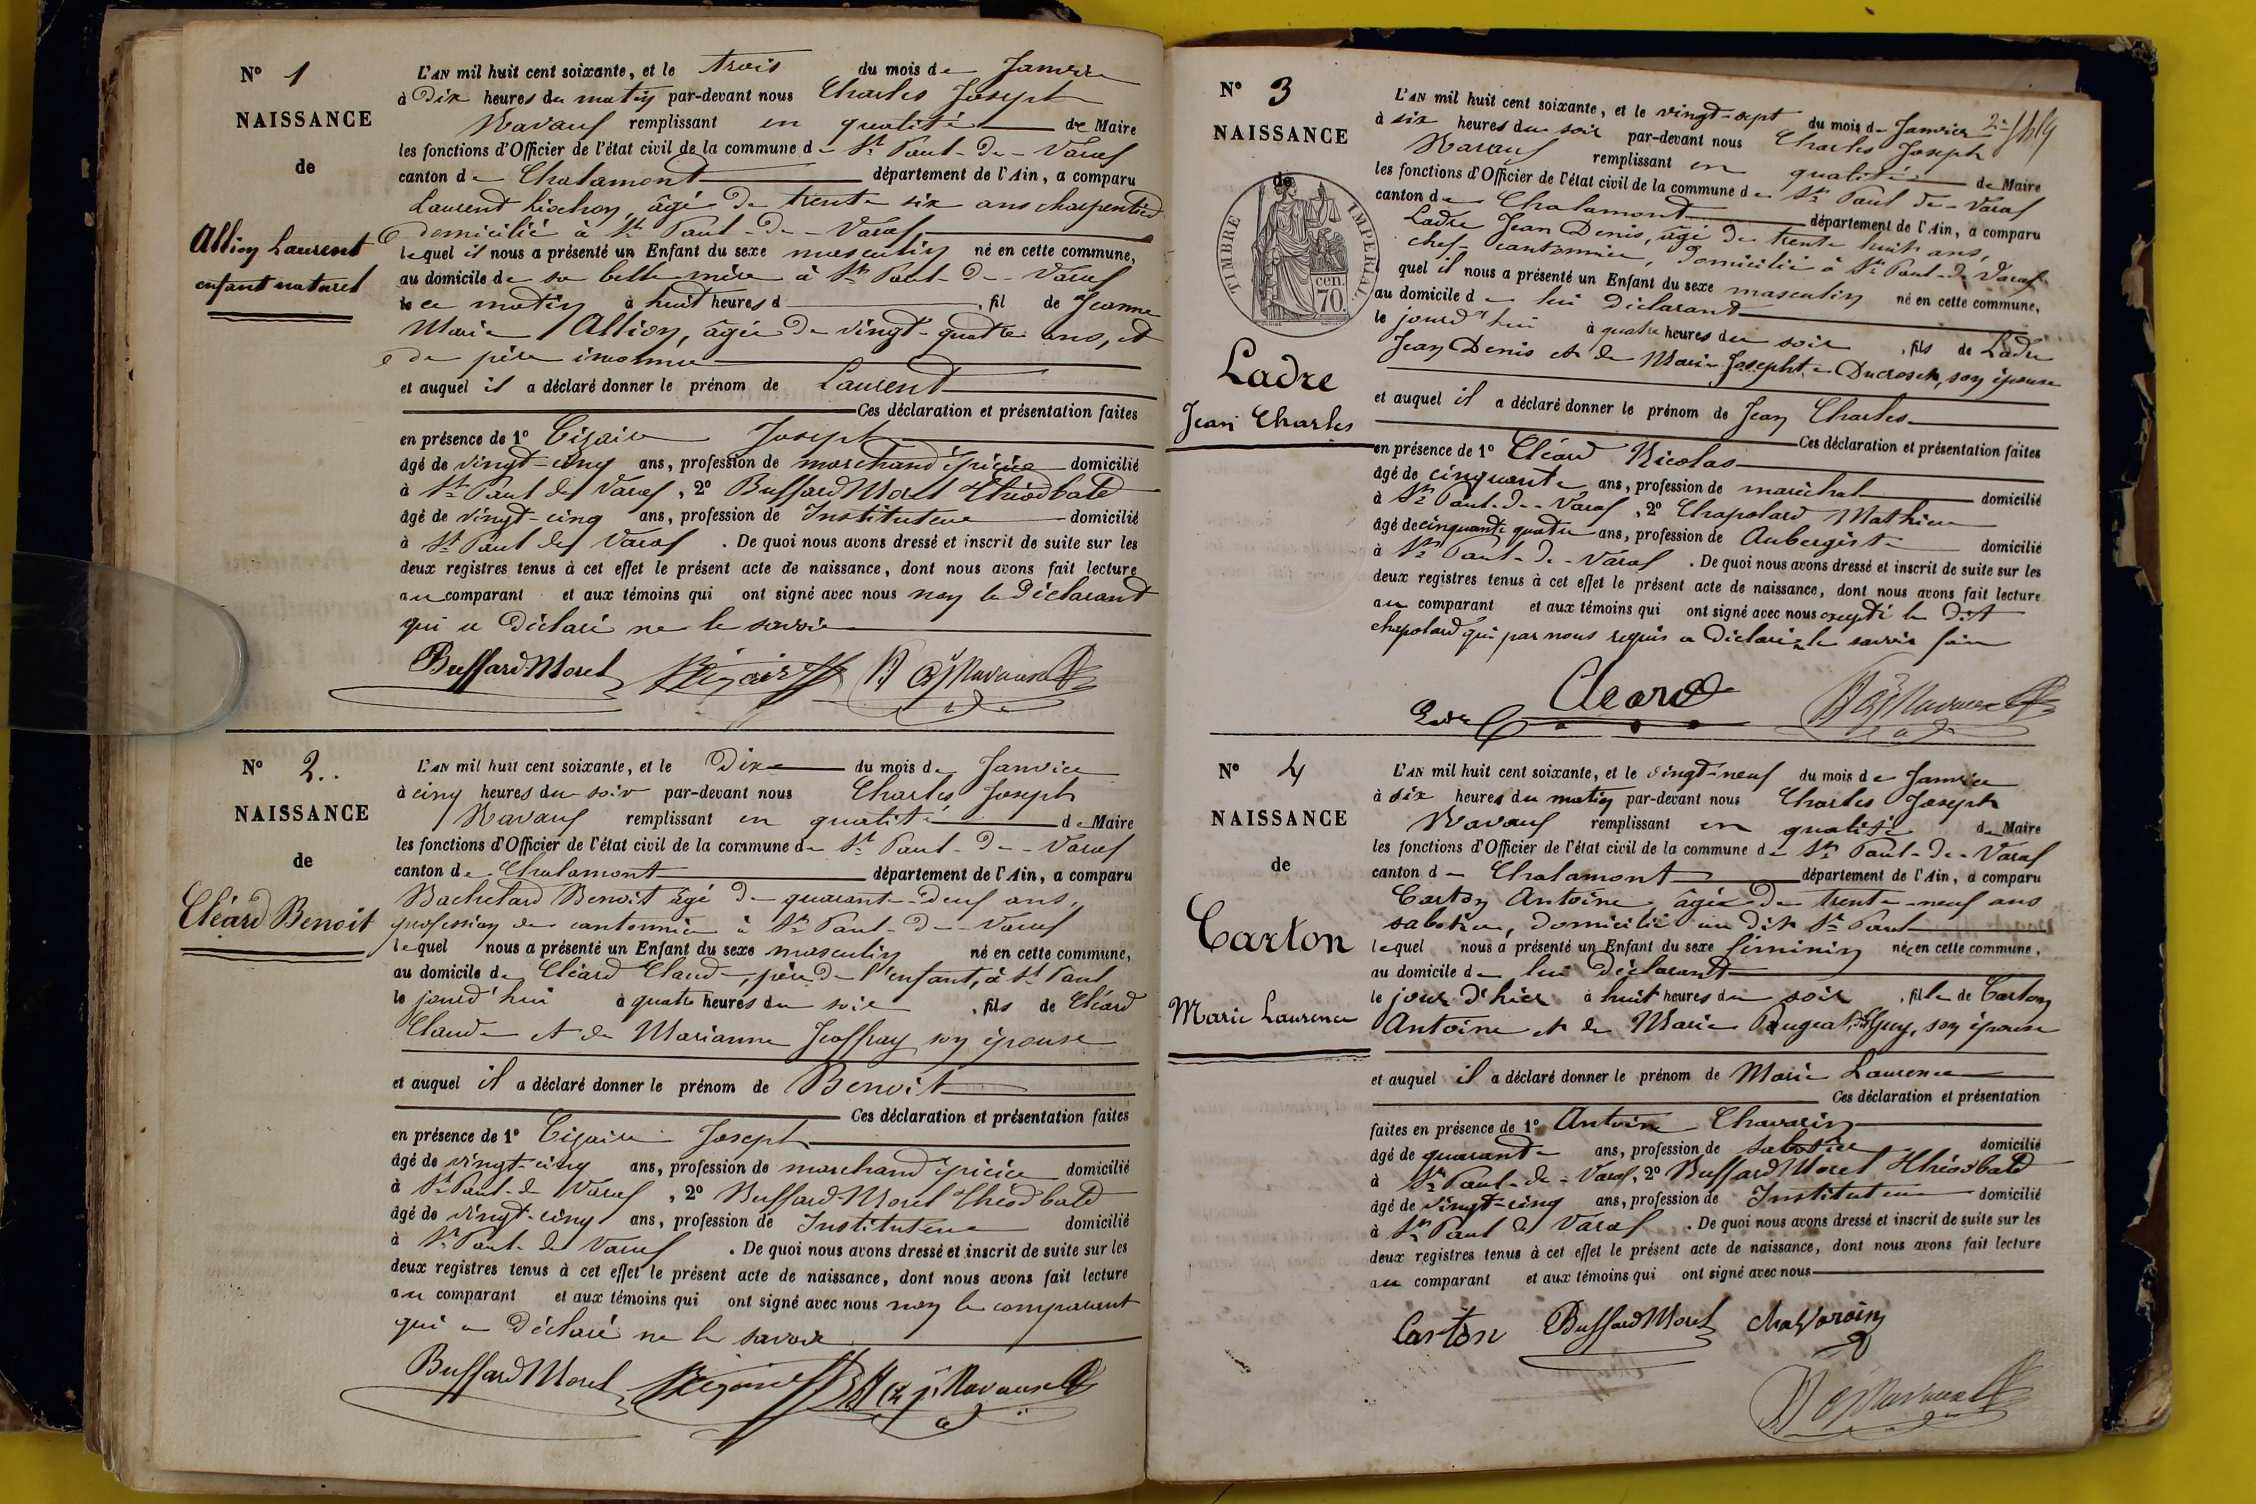 N° 1
NAISSANCE
de
Allion Laurent
enfant naturel
L'AN mil huit cent soixante, et le trois du mois de Janvier
à Dix heures du matin par-devant nous Charles Joseph
Ravaux remplissant en qualité de Maire
les fonctions d'Officier de l'état civil de la commune de St Paul-de-Varax
canton de Chalamont département de l'Ain, a comparu
Laurent âgé de trente six ans charpentier
domicilié à St Paul-de-Varax
lequel il nous a présenté un Enfant du sexe masculin né en cette commune,
au domicile de sa belle mère à St Paul-de-Varax
le ce matin à huit heures d , fil de Jeanne
Marie Allion, âgée de vingt-quatre ans, et
de père inconnu
et auquel il a déclaré donner le prénom de Laurent
Ces déclaration et présentation faites
en présence de 1° Joseph
âgé de vingt-cinq ans, profession de marchand épicier domicilié
à St Paul de Varax, 2° Buffard Morel Théodbald
âgé de vingt-cinq ans, profession de Instituteur domicilié
à St Paul de Varax. De quoi nous avons dressé et inscrit de suite sur les
deux registres tenus à cet effet le présent acte de naissance, dont nous avons fait lecture
au comparant et aux témoins qui ont signé avec nous non le Déclarant
qui a Déclaré ne le savoir
Buffard Morel
N° 2
NAISSANCE
de
Cléard Benoit
L'AN mil huit cent soixante, et le Dix du mois de Janvier
à cinq heures du soir par-devant nous Charles Joseph
Ravaux remplissant en qualité de Maire
les fonctions d'Officier de l'état civil de la commune de St Paul-de-Varax
canton de Chalamont département de l'Ain, a comparu
Bachelard Benoit âgé de quarante-deux ans,
profession de cantonnier à St Paul-de-Varax
lequel nous a présenté un Enfant du sexe masculin né en cette commune,
au domicile de Cléard Claude, père de l'enfant, à St Paul
le jourd'hui à quatre heures du soir, fils de Cléard
Claude et de Marianne Joffray son épouse
et auquel il a déclaré donner le prénom de Benoit
Ces déclaration et présentation faites
en présence de 1° Joseph
âgé de vingt-cinq ans, profession de marchand épicier domicilié
à St Paul-de Varax, 2° Buffard-Morel Théodbald
âgé de vingt-cinq ans, profession de Instituteur domicilié
à St Paul-de Varax. De quoi nous avons dressé et inscrit de suite sur les
deux registres tenus à cet effet le présent acte de naissance, dont nous avons fait lecture
au comparant et aux témoins qui ont signé avec nous non le comparant
qui a Déclaré ne le savoir
Buffard Morel
N° 3
NAISSANCE
de
TIMBRE IMPERIAL
70 cen.
Ladre
Jean Charles
L'AN mil huit cent soixante, et le vingt-sept du mois de Janvier
à six heures du soir par-devant nous Charles Joseph
Ravaux remplissant en qualité de Maire
les fonctions d'Officier de l'état civil de la commune de St Paul de-Varax
canton de Chalamont département de l'Ain, a comparu
Ladre Jean Denis, âgé de trente huit ans,
chef-cantonnier, domicilié à St Paul-de Varax
quel il nous a présenté un Enfant du sexe masculin né en cette commune,
au domicile de lui Déclarant
le jourd'hui à quatre heures du soir, fils de Ladre
Jean Denis et de Marie Josephte Ducrosch, son épouse
et auquel il a déclaré donner le prénom de Jean Charles
Ces déclaration et présentation faites
en présence de 1° Cléard Nicolas
âgé de cinquante ans, profession de maréchal domicilié
à St Paul-de-Varax, 2° Chapolard Mathieu
âgé de cinquante quatre ans, profession de Aubergiste domicilié
à St Paul-de-Varax. De quoi nous avons dressé et inscrit de suite sur les
deux registres tenus à cet effet le présent acte de naissance, dont nous avons fait lecture
au comparant et aux témoins qui ont signé avec nous excepté le Dit
chapolard qui par nous requis a déclaré ne le savoir faire
Cleard
Ladre
N° 4
NAISSANCE
de
Carton
Marie Laurence
L'AN mil huit cent soixante, et le vingt-neuf du mois de Janvier
à six heures du matin par-devant nous Charles Joseph
Ravaux remplissant en qualité de Maire
les fonctions d'Officier de l'état civil de la commune de St Paul-de-Varax
canton de Chalamont département de l'Ain, a comparu
Carton Antoine, âgé de trente-neuf ans
sabotier, domicilié au dit St Paul
lequel nous a présenté un Enfant du sexe féminin née en cette commune,
au domicile de lui Déclarant
le jour d'hier à huit heures du soir, fille de Carton
Antoine et de Marie Guy, son épouse
et auquel il a déclaré donner le prénom de Marie Laurence
Ces déclaration et présentation
faites en présence de 1° Antoine Chavarin
âgé de quarante ans, profession de sabotier domicilié
à St Paul-de-Varax, 2° Buffard Morel Théodbald
âgé de vingt-cinq ans, profession de Instituteur domicilié
à St Paul de Varax. De quoi nous avons dressé et inscrit de suite sur les
deux registres tenus à cet effet le présent acte de naissance, dont nous avons fait lecture
au comparant et aux témoins qui ont signé avec nous
Carton Buffard Morel chavaroin